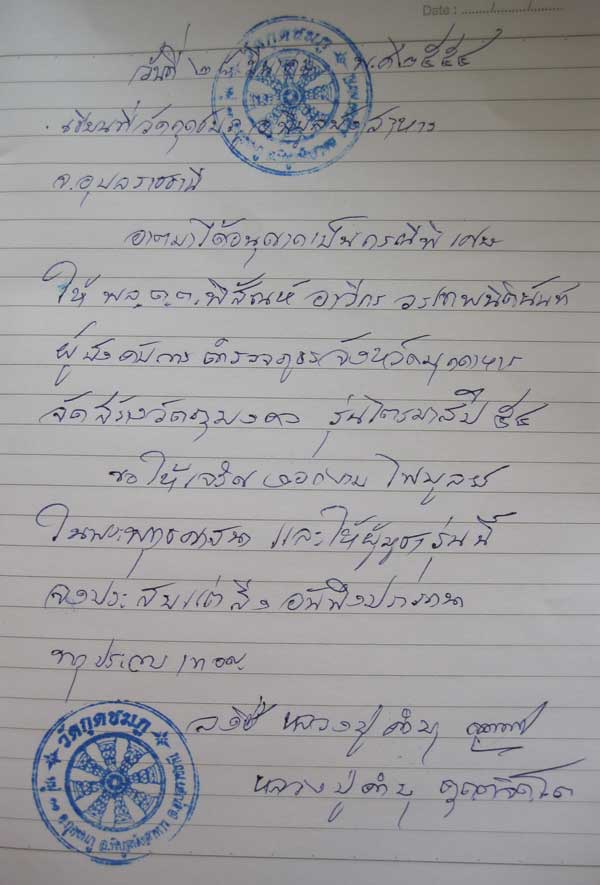 Date : ......../........../..........
วันที่ ๒๘ มีนาคม พ.ศ ๒๕๕๔
เขียนที่วัดกุดชมภู อ.พิบูลมังสาหาร
จ.อุบลราชธานี
อาตมาได้อนุญาตเป็นกรณีพิเศษ
ให้ พล.ต.ต.พิสัณห์ อาวีกร วรเทพนิตินันท์
ผู้บังคับการตำรวจภูธรจังหวัดมุกดาหาร
จัดสร้างวัตถุมงคล รุ่นไตรมาสปี ๕๔
ขอให้เจริญงอกงาม ไพบูลย์
ในพระพุทธศาสนา และให้ผู้บูชารุ่นนี้
จงประสบแต่สิ่งอันพึงปรารถนา
ทุกประการ เทอญ
ลงชื่อ หลวงปู่คำบุ
หลวงปู่คำบุ คุตฺตจิตฺโต
วัดกุดชมภู
วัดกุดชมภู